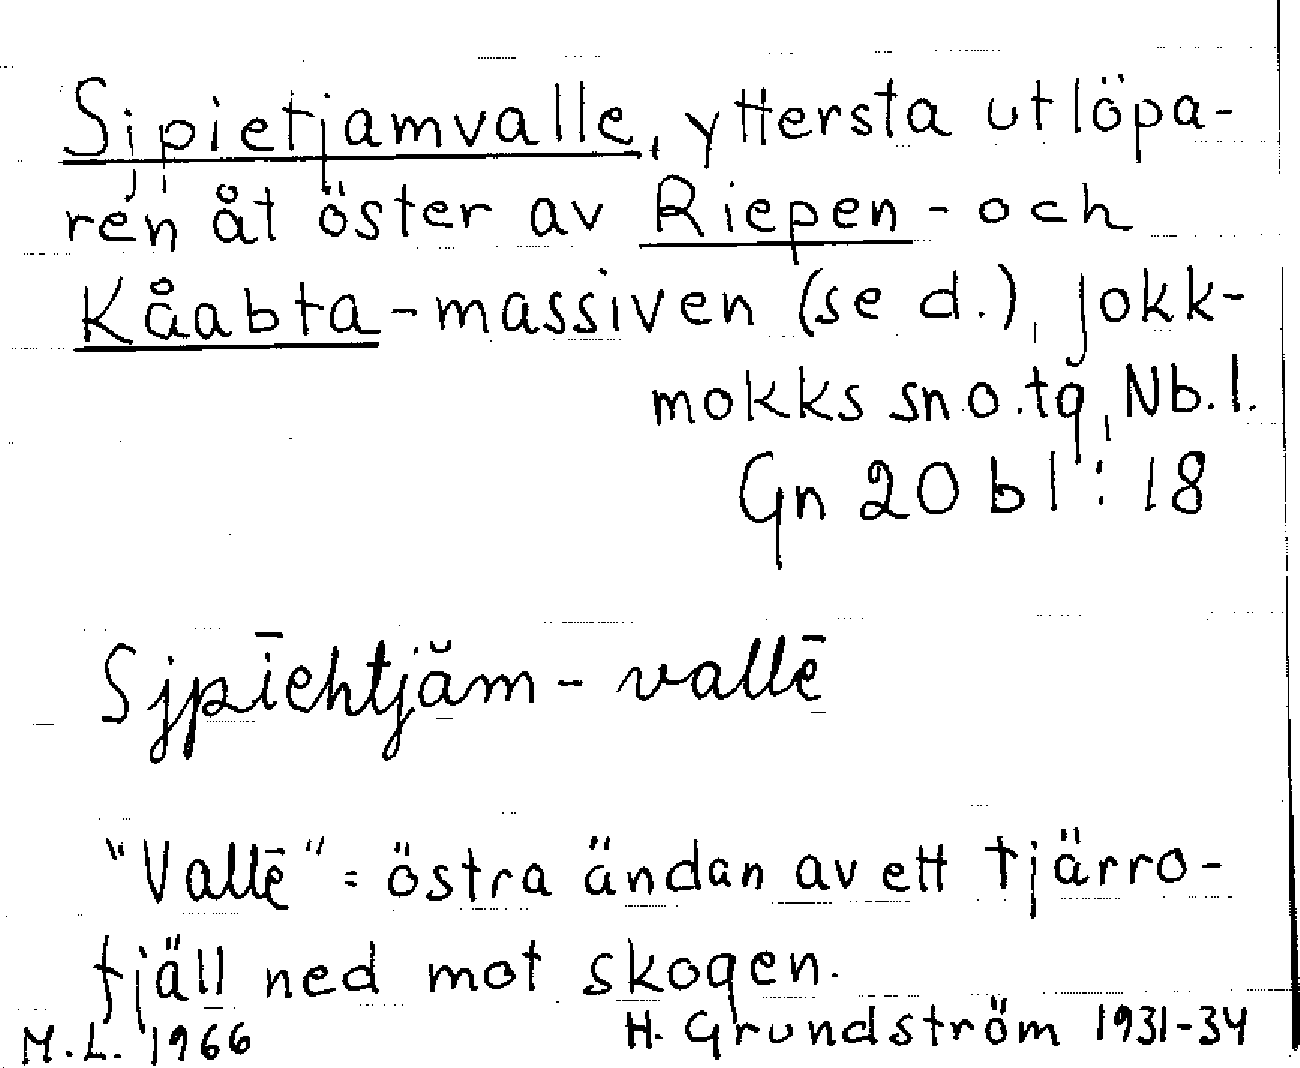 Sjpietjamvalle, yttersta utlöpa-
ren åt öster av Riepen - och
Kåabta - massiven (se d.), Jokk-
mokks sn o. tg, Nb. l.
Gn 20 bl : 18
Sjpīehtjăm - vallē
"Vallē" = östra ändan av ett tjärro-
fjäll ned mot skogen.
M. L. 1966 H. Grundström 1931-34